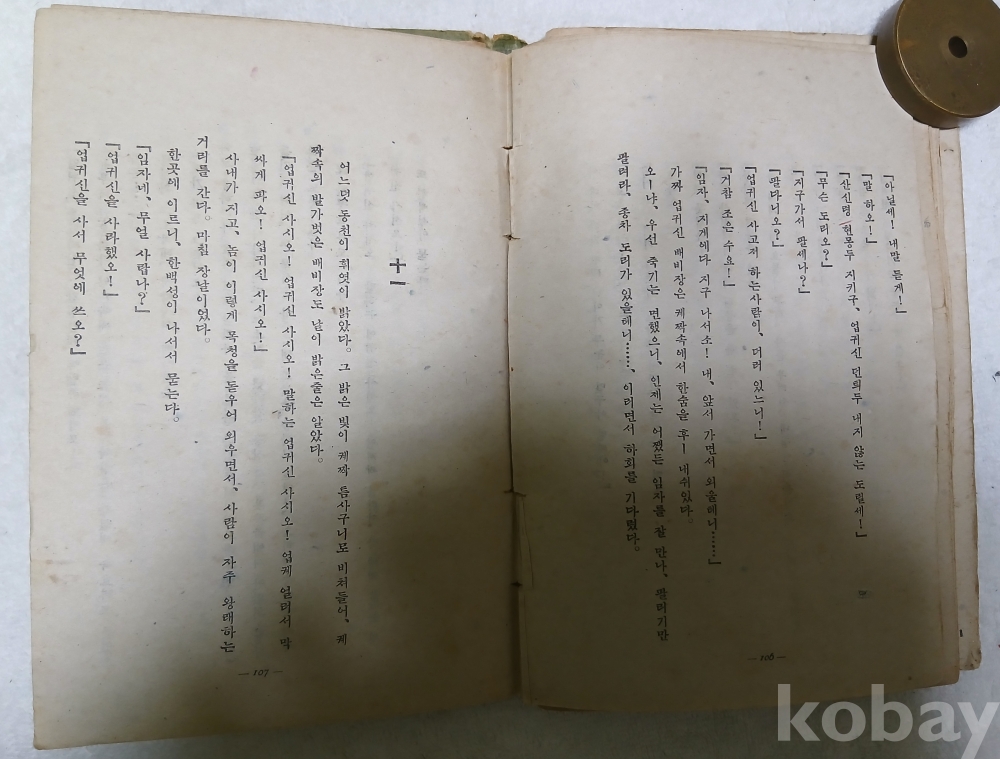 『아닐세! 내말 듣게!』
『말 하오!』
『산신령 현몽두 지키구, 업귀신 던희두 내지 않는 도릴세!』
『무슨 도러오?』
『지구가서 팔세나?』
『팔다니오?』
『업귀신 사고저 하는사람이, 더러 있느니!』
『거참 조은 수요!』
『임자, 지게에다 지구 나서소! 내, 앞서 가면서 외울테니……』
가짜 업귀신 배비장은 케짝속에서 한숨을 후ー 내쉬있다.
오ー냐, 우선 죽기는 면했으니, 인제는 어쨌든 임자를 잘 만나, 팔려기만
팔려라, 종차 도리가 있을테니……, 이러면서 하회를 기다렸다.
— 106 —
十一
어느덧 동천이 훠엿이 밝았다. 그 밝은 빛이 케짝 틈사구니로 비처들어, 케
짝속의 말가벗은 배비장도 날이 밝은줄은 알았다.
『업귀신 사시오! 업귀신 사시오! 말하는 업귀신 사시오! 업케 얼러서 막
싸게 파오! 업귀신 사시오!』
사내가 지고, 놈이 이렇게 목청을 돋우어 외우면서, 사람이 자주 왕래하는
거리를 간다. 마침 장날이었다.
한곳에 이르니, 한백성이 나서서 묻는다.
『임자네, 무얼 사랍나?』
『업귀신을 사라했오!』
『업귀신을 사서 무엇에 쓰오?』
— 107 —
kobay